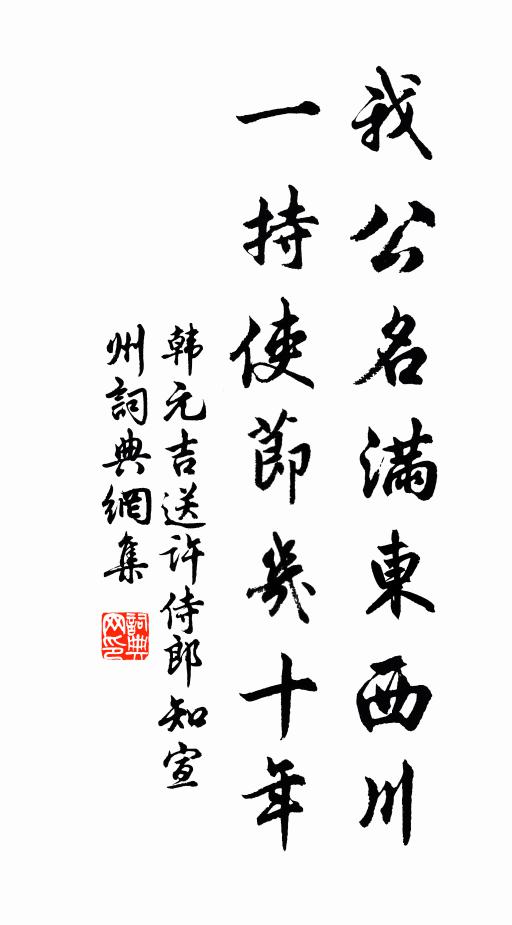 我公名滿東西川
一持使節幾十年
韩元吉送许侍郎知宣
州詞典網集
詞典
网印